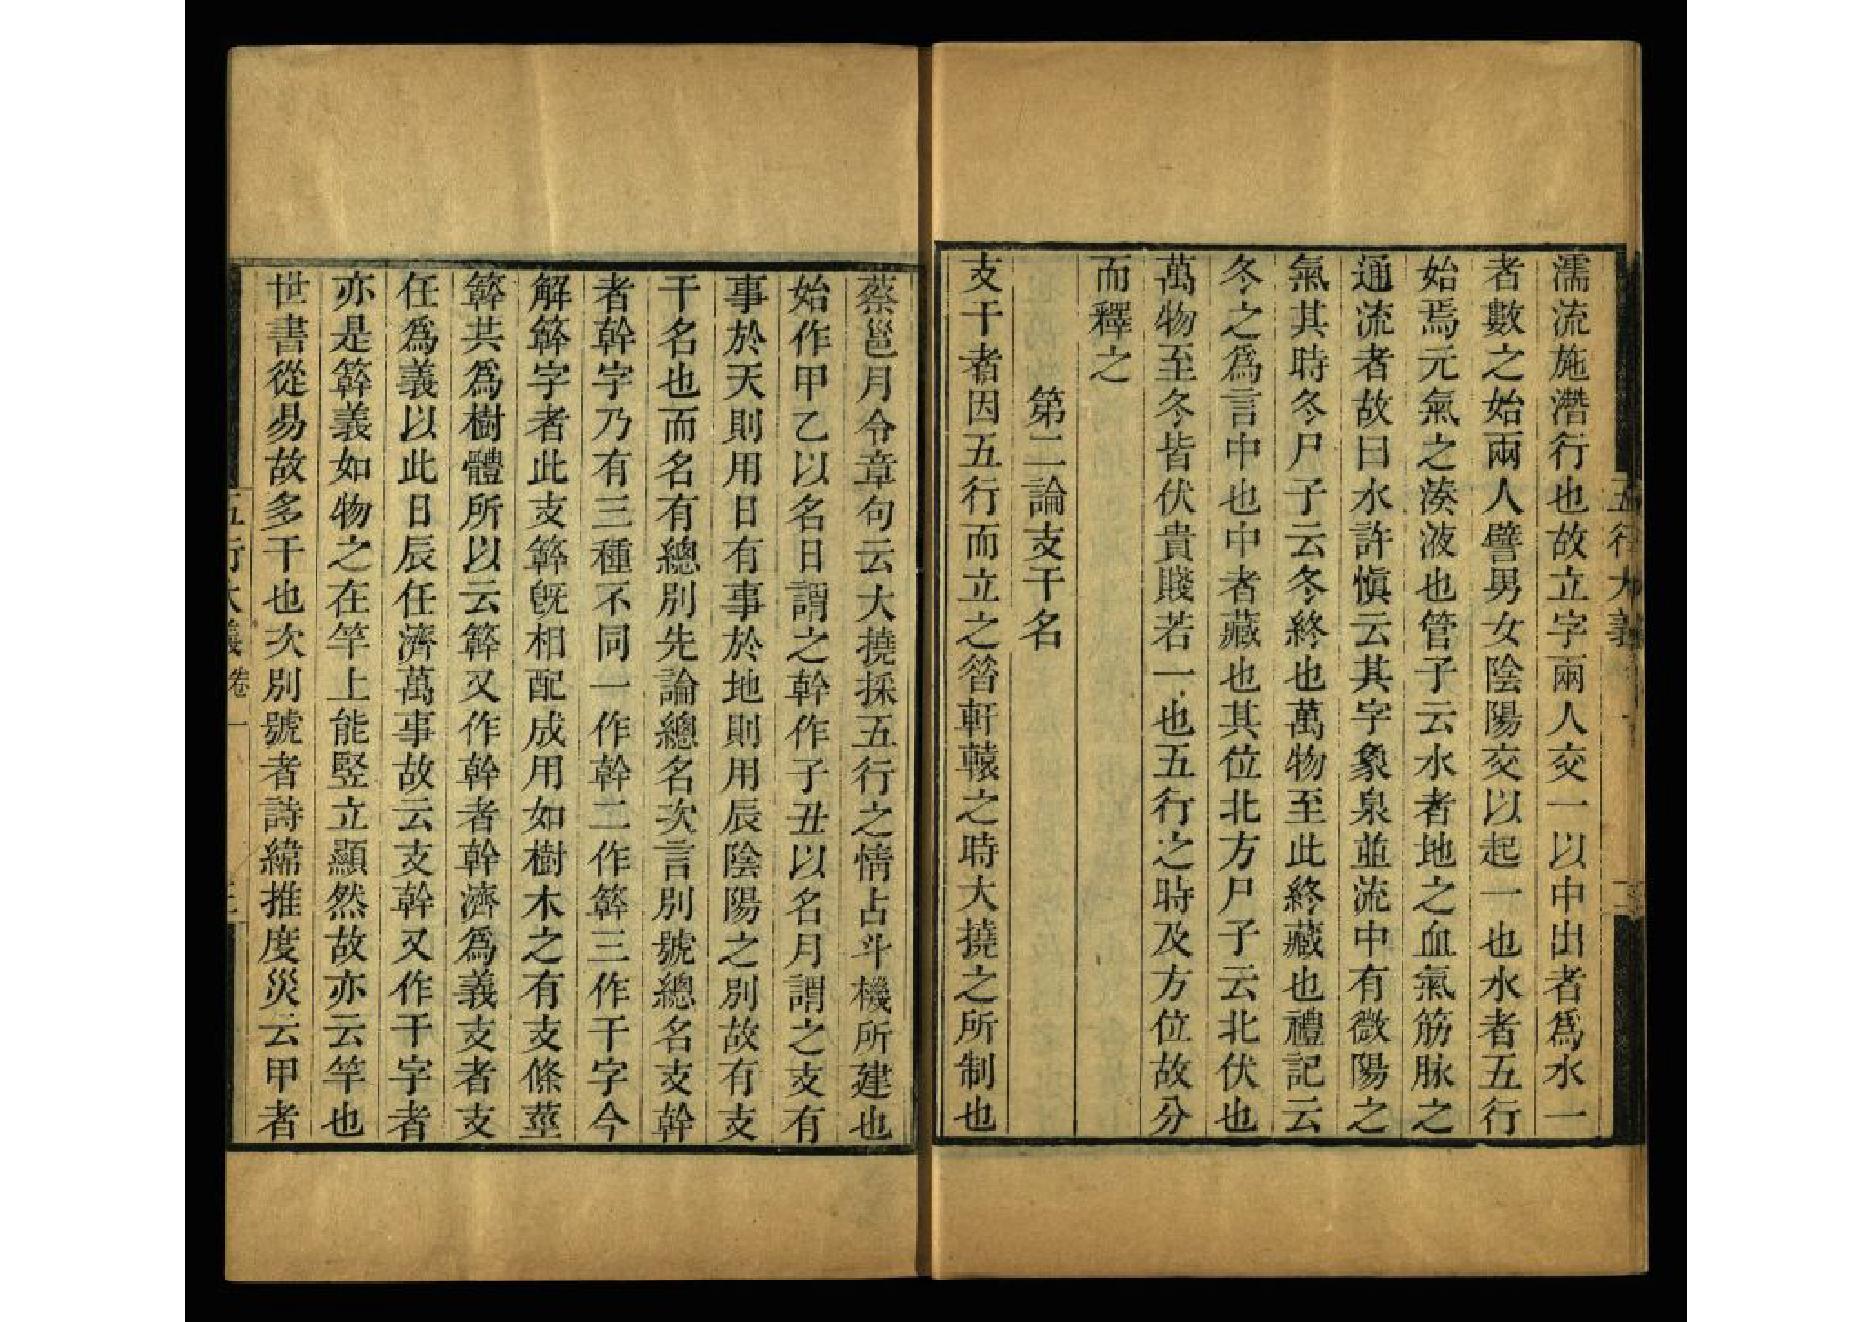 濡流施潛行也故立字兩人交一以中出者爲水一
者數之始兩人譬男女陰陽交以起一也水者五行
始焉元氣之湊液也管子云水者地之血氣筋脉之
通流者故曰水許愼云其字象泉並流中有微陽之
氣其時冬尸子云冬終也萬物至此終藏也禮記云
冬之爲言中也中者藏也其位北方尸子云北伏也
萬物至冬皆伏貴賤若一也五行之時及方位故分
而釋之
第二論支干名
支干者因五行而立之昝軒轅之時大撓之所制也
蔡邕月令章句云大撓採五行之情占斗機所建也
始作甲乙以名日謂之幹作子丑以名月謂之支有
事於天則用日有事於地則用辰陰陽之別故有支
干名也而名有總別先論總名次言別號總名支幹
者幹字乃有三種不同一作幹二作簳三作干字今
解簳字者此支簳旣相配成用如樹木之有支條莖
簳共爲樹體所以云簳又作幹者幹濟爲義支者支
任爲義以此日辰任濟萬事故云支幹又作干字者
亦是簳義如物之在竿上能竪立顯然故亦云竿也
世書從易故多干也次別號者詩緯推度災云甲者
五行大義 卷一